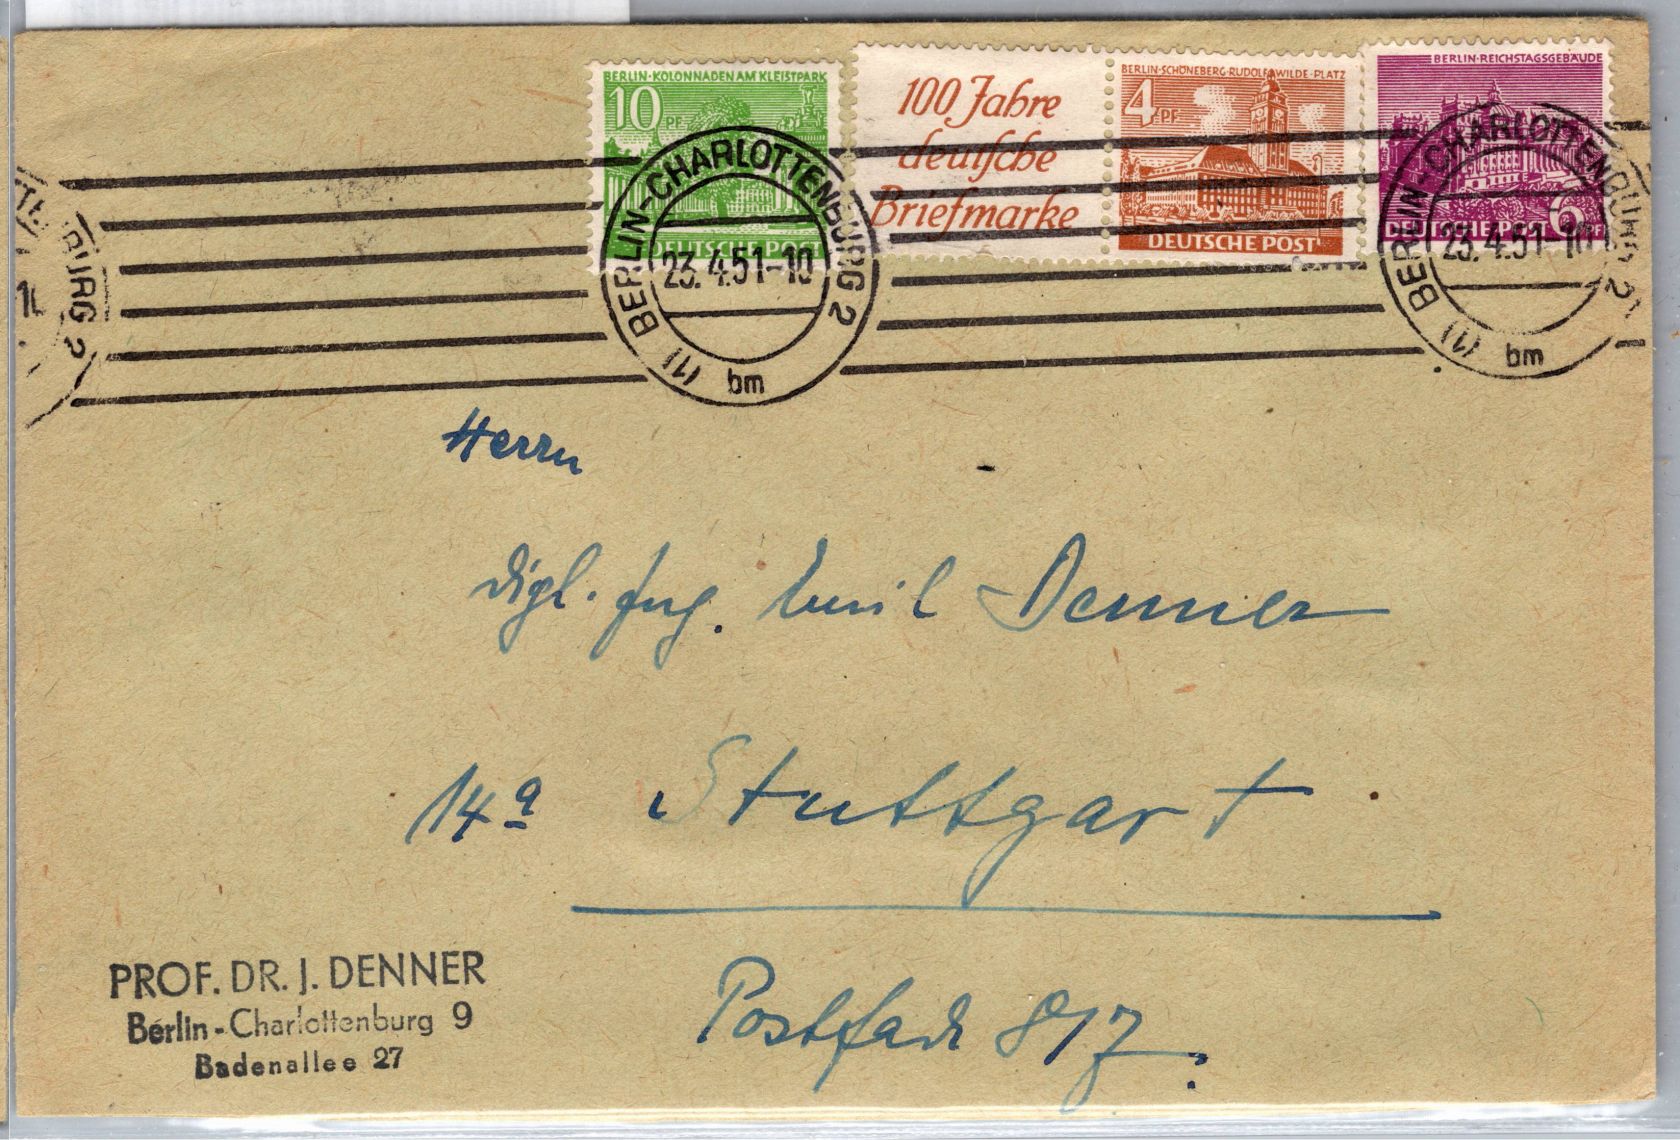 BERLIN·KOLONNADEN AM KLEISTPARK
10 PF
DEUTSCHE POST
100 Jahre
deutsche
Briefmarke
BERLIN-SCHÖNEBERG·RUDOLF-WILDE-PLATZ
4 PF
DEUTSCHE POST
BERLIN-REICHSTAGSGEBÄUDE
DEUTSCHE POST 6 PF
BURG 2
(1) BERLIN-CHARLOTTENBURG 2
23.4.51-10
bm
(1) BERLIN-CHARLOTTENBURG 2
23.4.51-10
bm
Herrn
Dipl. Ing. Emil Denner
14a Stuttgart
Postfach 817.
PROF. DR. J. DENNER
Berlin-Charlottenburg 9
Badenallee 27